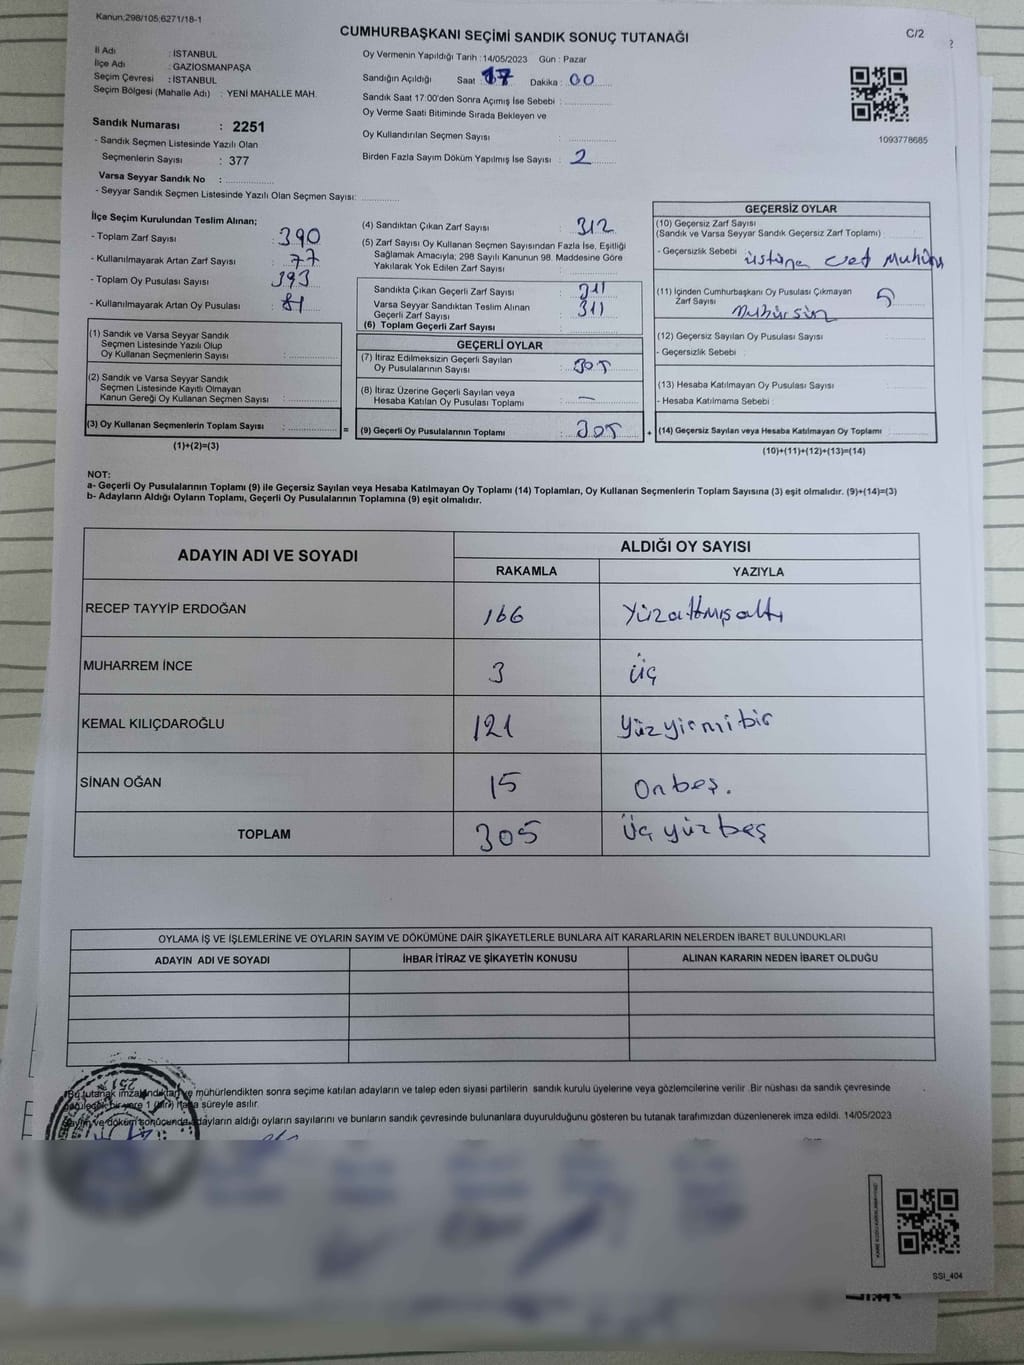 Kanun:298/105,6271/18-1
C/2
CUMHURBAŞKANI SEÇİMİ SANDIK SONUÇ TUTANAĞI
İl Adı : İSTANBUL
İlçe Adı : GAZİOSMANPAŞA
Seçim Çevresi : İSTANBUL
Seçim Bölgesi (Mahalle Adı) : YENİ MAHALLE MAH.
Sandık Numarası : 2251
- Sandık Seçmen Listesinde Yazılı Olan
Seçmenlerin Sayısı : 377
Varsa Seyyar Sandık No :
- Seyyar Sandık Seçmen Listesinde Yazılı Olan Seçmen Sayısı:
Oy Vermenin Yapıldığı Tarih :14/05/2023 Gün : Pazar
Sandığın Açıldığı Saat : 17 Dakika : 00
Sandık Saat 17:00'den Sonra Açımış İse Sebebi :
Oy Verme Saati Bitiminde Sırada Bekleyen ve
Oy Kullandırılan Seçmen Sayısı :
Birden Fazla Sayım Döküm Yapılmış İse Sayısı : 2
1093778685
İlçe Seçim Kurulundan Teslim Alınan;
- Toplam Zarf Sayısı : 390
- Kullanılmayarak Artan Zarf Sayısı : 77
- Toplam Oy Pusulası Sayısı : 393
- Kullanılmayarak Artan Oy Pusulası : 81
(1) Sandık ve Varsa Seyyar Sandık
Seçmen Listesinde Yazılı Olup
Oy Kullanan Seçmenlerin Sayısı :
(2) Sandık ve Varsa Seyyar Sandık
Seçmen Listesinde Kayıtlı Olmayan
Kanun Gereği Oy Kullanan Seçmen Sayısı :
(3) Oy Kullanan Seçmenlerin Toplam Sayısı :
(1)+(2)=(3)
(4) Sandıktan Çıkan Zarf Sayısı : 312
(5) Zarf Sayısı Oy Kullanan Seçmen Sayısından Fazla İse, Eşitliği
Sağlamak Amacıyla; 298 Sayılı Kanunun 98. Maddesine Göre
Yakılarak Yok Edilen Zarf Sayısı :
Sandıkta Çıkan Geçerli Zarf Sayısı : 311
Varsa Seyyar Sandıktan Teslim Alınan
Geçerli Zarf Sayısı : 311
(6) Toplam Geçerli Zarf Sayısı :
GEÇERLİ OYLAR
(7) İtiraz Edilmeksizin Geçerli Sayılan
Oy Pusulalarının Sayısı : 305
(8) İtiraz Üzerine Geçerli Sayılan veya
Hesaba Katılan Oy Pusulası Toplamı : –
= (9) Geçerli Oy Pusulalarının Toplamı : 305
GEÇERSİZ OYLAR
(10) Geçersiz Zarf Sayısı
(Sandık ve Varsa Seyyar Sandık Geçersiz Zarf Toplamı) :
- Geçersizlik Sebebi : üstüne evet Mühürü
(11) İçinden Cumhurbaşkanı Oy Pusulası Çıkmayan
Zarf Sayısı : 5
mühürsüz
(12) Geçersiz Sayılan Oy Pusulası Sayısı :
- Geçersizlik Sebebi :
(13) Hesaba Katılmayan Oy Pusulası Sayısı :
- Hesaba Katılmama Sebebi :
+ (14) Geçersiz Sayılan veya Hesaba Katılmayan Oy Toplamı :
(10)+(11)+(12)+(13)=(14)
NOT:
a- Geçerli Oy Pusulalarının Toplamı (9) ile Geçersiz Sayılan veya Hesaba Katılmayan Oy Toplamı (14) Toplamları, Oy Kullanan Seçmenlerin Toplam Sayısına (3) eşit olmalıdır. (9)+(14)=(3)
b- Adayların Aldığı Oyların Toplamı, Geçerli Oy Pusulalarının Toplamına (9) eşit olmalıdır.
ADAYIN ADI VE SOYADI ALDIĞI OY SAYISI
RAKAMLA YAZIYLA
RECEP TAYYİP ERDOĞAN 166 Yüzaltmışaltı
MUHARREM İNCE 3 üç
KEMAL KILIÇDAROĞLU 121 Yüzyirmibir
SİNAN OĞAN 15 Onbeş.
TOPLAM 305 Üçyüzbeş
OYLAMA İŞ VE İŞLEMLERİNE VE OYLARIN SAYIM VE DÖKÜMÜNE DAİR ŞİKAYETLERLE BUNLARA AİT KARARLARIN NELERDEN İBARET BULUNDUKLARI
ADAYIN ADI VE SOYADI İHBAR İTİRAZ VE ŞİKAYETİN KONUSU ALINAN KARARIN NEDEN İBARET OLDUĞU
Bu tutanak imzalandıktan ve mühürlendikten sonra seçime katılan adayların ve talep eden siyasi partilerin sandık kurulu üyelerine veya gözlemcilerine verilir .Bir nüshası da sandık çevresinde
bir yere 1 (bir) hafta süreyle asılır.
Sayım ve döküm sonucunda adayların aldığı oyların sayılarını ve bunların sandık çevresinde bulunanlara duyurulduğunu gösteren bu tutanak tarafımızdan düzenlenerek imza edildi. 14/05/2023
SSI_404